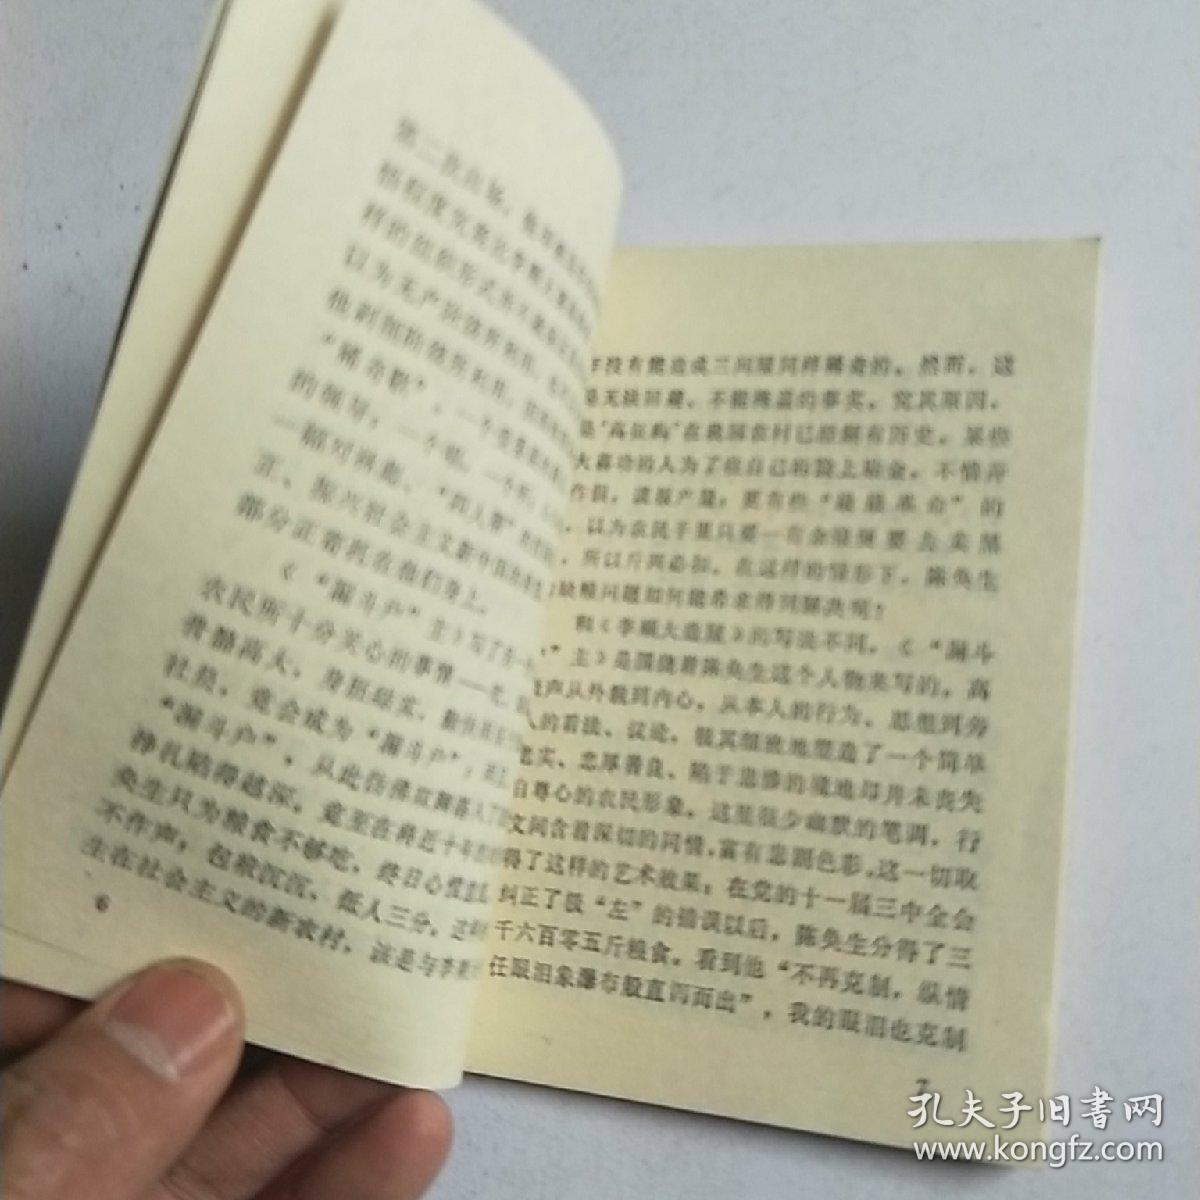 第二次出场，
以为无产阶级所利用，
"稀奇歌"，一个
的领导，一个唱，一个
一唱对词曲，"四人帮"
正、振兴社会主义新中国
部分正寄托在他们身上。
《"漏斗户"主》写了
农民所十分关心的事情——
骨骼高大，身坯结实，
社员，竟会成为"漏斗户"，
"漏斗户"，从此仿佛
挣扎陷得越深，竟至在将近十年
奂生只为粮食不够吃，终日心
不作声，包袱沉沉，低人三分，
生在社会主义的新农村，该是与李
6
没有能造成三间屋同样稀奇的。然而，这
是无法回避、不能掩盖的事实。究其原因，
是"高征购"在我国农村已经颇有历史。某些
大喜功的人为了在自己的脸上贴金，不惜弄
作假，谎报产量；更有些"最最革命"的
，以为农民手里只要一有余粮便要去卖黑
，所以斤两必扣。在这样的情形下，陈奂生
缺粮问题如何能希求得到解决呢！
和《李顺大造屋》的写法不同，《"漏斗
"主》是围绕着陈奂生这个人物来写的。高
声从外貌到内心，从本人的行为、思想到旁
人的看法、议论，极其细致地塑造了一个简单
老实、忠厚善良、陷于悲惨的境地却并未丧失
自尊心的农民形象。这里很少幽默的笔调，行
文间含着深切的同情，富有悲剧色彩。这一切取
得了这样的艺术效果：在党的十一届三中全会
纠正了极"左"的错误以后，陈奂生分得了三
千六百零五斤粮食。看到他"不再克制，纵情
任眼泪象瀑布般直泻而出"，我的眼泪也克制
7
孔夫子旧书网
www.kongfz.com